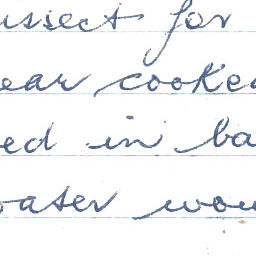 ussect for
ear cooked
ed in ba
water wou